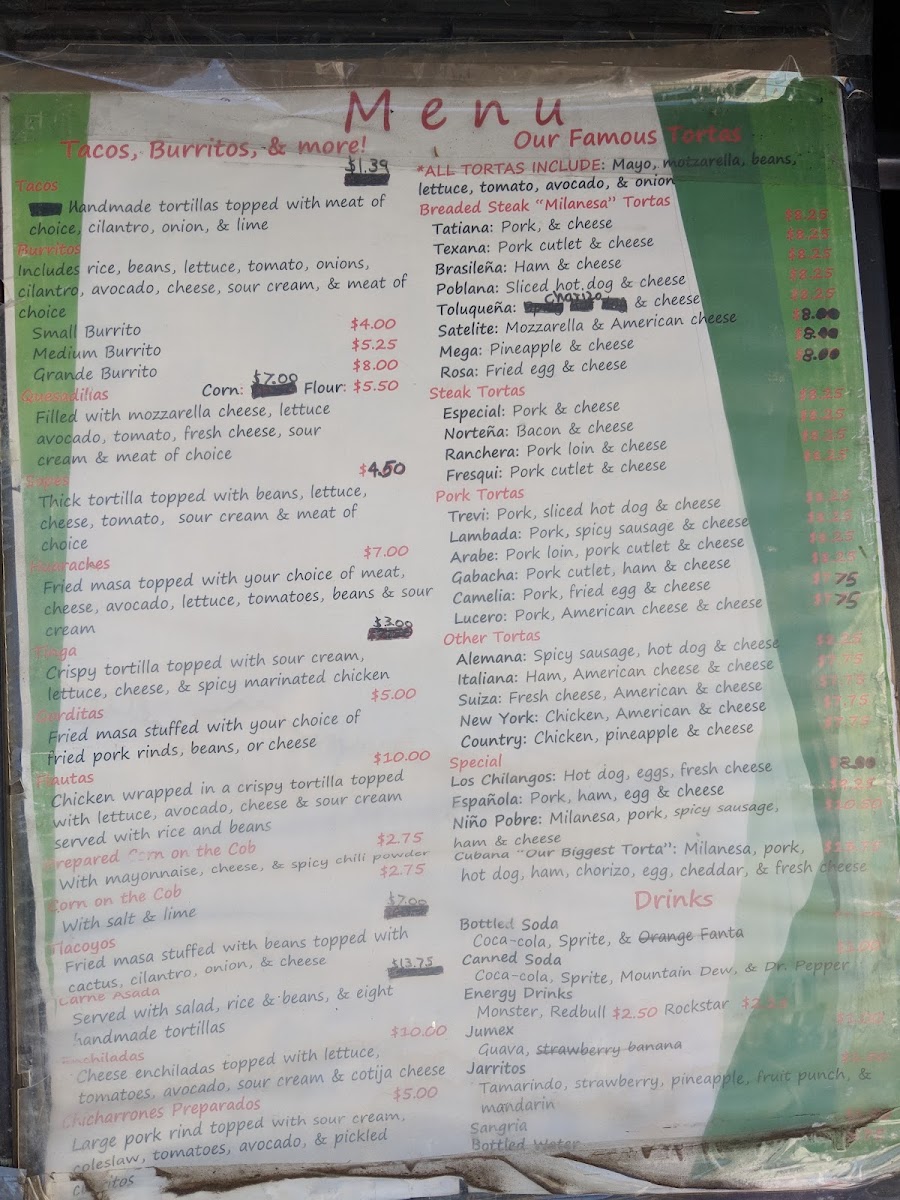 Menu
Tacos, Burritos, & more!
$1.39
Tacos
Handmade tortillas topped with meat of
choice, cilantro, onion, & lime
Burritos
Includes rice, beans, lettuce, tomato, onions,
cilantro, avocado, cheese, sour cream, & meat of
choice
Small Burrito $4.00
Medium Burrito $5.25
Grande Burrito $8.00
Quesadillas Corn: $7.00 Flour: $5.50
Filled with mozzarella cheese, lettuce
avocado, tomato, fresh cheese, sour
cream & meat of choice
$4.50
Thick tortilla topped with beans, lettuce,
cheese, tomato, sour cream & meat of
choice
Huaraches $7.00
Fried masa topped with your choice of meat,
cheese, avocado, lettuce, tomatoes, beans & sour
cream
$3.00
Crispy tortilla topped with sour cream,
lettuce, cheese, & spicy marinated chicken
Gorditas $5.00
Fried masa stuffed with your choice of
fried pork rinds, beans, or cheese
Flautas $10.00
Chicken wrapped in a crispy tortilla topped
with lettuce, avocado, cheese & sour cream
served with rice and beans
Prepared Corn on the Cob $2.75
With mayonnaise, cheese, & spicy chili powder
Corn on the Cob $2.75
With salt & lime
Tlacoyos $7.00
Fried masa stuffed with beans topped with
cactus, cilantro, onion, & cheese
Carne Asada $13.75
Served with salad, rice & beans, & eight
handmade tortillas
Enchiladas $10.00
Cheese enchiladas topped with lettuce,
tomatoes, avocado, sour cream & cotija cheese
Chicharrones Preparados $5.00
Large pork rind topped with sour cream,
coleslaw, tomatoes, avocado, & pickled
Our Famous Tortas
*ALL TORTAS INCLUDE: Mayo, motzarella, beans,
lettuce, tomato, avocado, & onion
Breaded Steak "Milanesa" Tortas
Tatiana: Pork, & cheese $8.25
Texana: Pork cutlet & cheese $8.25
Brasileña: Ham & cheese $8.25
Poblana: Sliced hot dog & cheese $8.25
Toluqueña: Chorizo & cheese
Satelite: Mozzarella & American cheese 8.00
Mega: Pineapple & cheese 8.00
Rosa: Fried egg & cheese 8.00
Steak Tortas
Especial: Pork & cheese
Norteña: Bacon & cheese
Ranchera: Pork loin & cheese
Fresqui: Pork cutlet & cheese
Pork Tortas
Trevi: Pork, sliced hot dog & cheese
Lambada: Pork, spicy sausage & cheese
Arabe: Pork loin, pork cutlet & cheese
Gabacha: Pork cutlet, ham & cheese
Camelia: Pork, fried egg & cheese 75
Lucero: Pork, American cheese & cheese 75
Other Tortas
Alemana: Spicy sausage, hot dog & cheese
Italiana: Ham, American cheese & cheese
Suiza: Fresh cheese, American & cheese
New York: Chicken, American & cheese
Country: Chicken, pineapple & cheese
Special
Los Chilangos: Hot dog, eggs, fresh cheese
Española: Pork, ham, egg & cheese
Niño Pobre: Milanesa, pork, spicy sausage,
ham & cheese
Cubana "Our Biggest Torta": Milanesa, pork,
hot dog, ham, chorizo, egg, cheddar, & fresh cheese
Drinks
Bottled Soda
Coca-cola, Sprite, & Orange Fanta
Canned Soda
Coca-cola, Sprite, Mountain Dew, & Dr. Pepper
Energy Drinks
Monster, Redbull $2.50 Rockstar
Jumex
Guava, strawberry banana
Jarritos
Tamarindo, strawberry, pineapple, fruit punch, &
mandarin
Sangria
Bottled Water